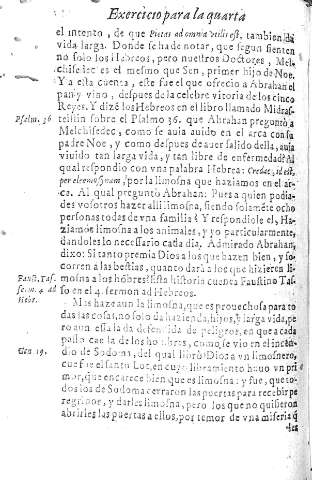 Exercicio para la quarta
el intento, de que Pietas ad omnia vtilis est, tambien da
vida larga. Donde se ha de notar, que segun sienten
no solo los Hebreos, pero nuestros Doctores, Mel-
chisedec es el mesmo que Sen, primer hijo de Noe.
Y a esta cuenta, este fue el que ofrecio a Abrahan el
pan y vino, despues de la celebre vitoria de los cinco
Reyes. Y dizé los Hebreos en el libro llamado Midras-
Psalm. 36
teilsin sobre el Psalmo 36. que Abrahan preguntò a
Melchisedec, como se auia auido en el arca con su
padre Noe, y como despues de auer salido della, auia
viuido tan larga vida, y tan libre de enfermedad Al
qual respondio con vna palabra Hebrea: Credac, id est,
per eleemosynam, por la limosna que haziamos en el ar-
ca. Al qual preguntò Abrahan: Pues a quien podia-
des vosotros hazer alli limosna, siendo solaméte ocho
personas todas de vna familia? Y respondiole el, Ha-
ziamos limosna a los animales, y yo particularmente,
dandoles lo necessario cada dia. Admirado Abrahan,
dixo: Si tanto premia Dios a los que hazen bien, y so-
corren a las bestias, quanto dará a los que hizieren li-
mosna a los hõbres? Esta historia cuenta Faustino Tas-
so en el 4. sermon ad Hebreos.
Faust. Tas-
se. 4. ad
Hebr.
Mas haze aun la limosna, que es prouechosa para to-
das las cosas, no solo da hazienda, hijos, y larga vida, pe
ro aun essa la da defendida de peligros, en que a cada
passo cae la de los hombres, como se vio en el incen-
Gen 19.
dio de Sodoma, del qual librò Dios a vn limosnero,
que fue el santo Lot, en cuyo libramiento huuo vn pri
mor, que encarece bien que es limosna: y fue, que to-
dos los de Sodoma cerraron las puertas para recebir pe
regrinos, y darles limosna, pero los que no quisieron
abrirles las puertas a ellos, por temor de vna miseria q̃
les